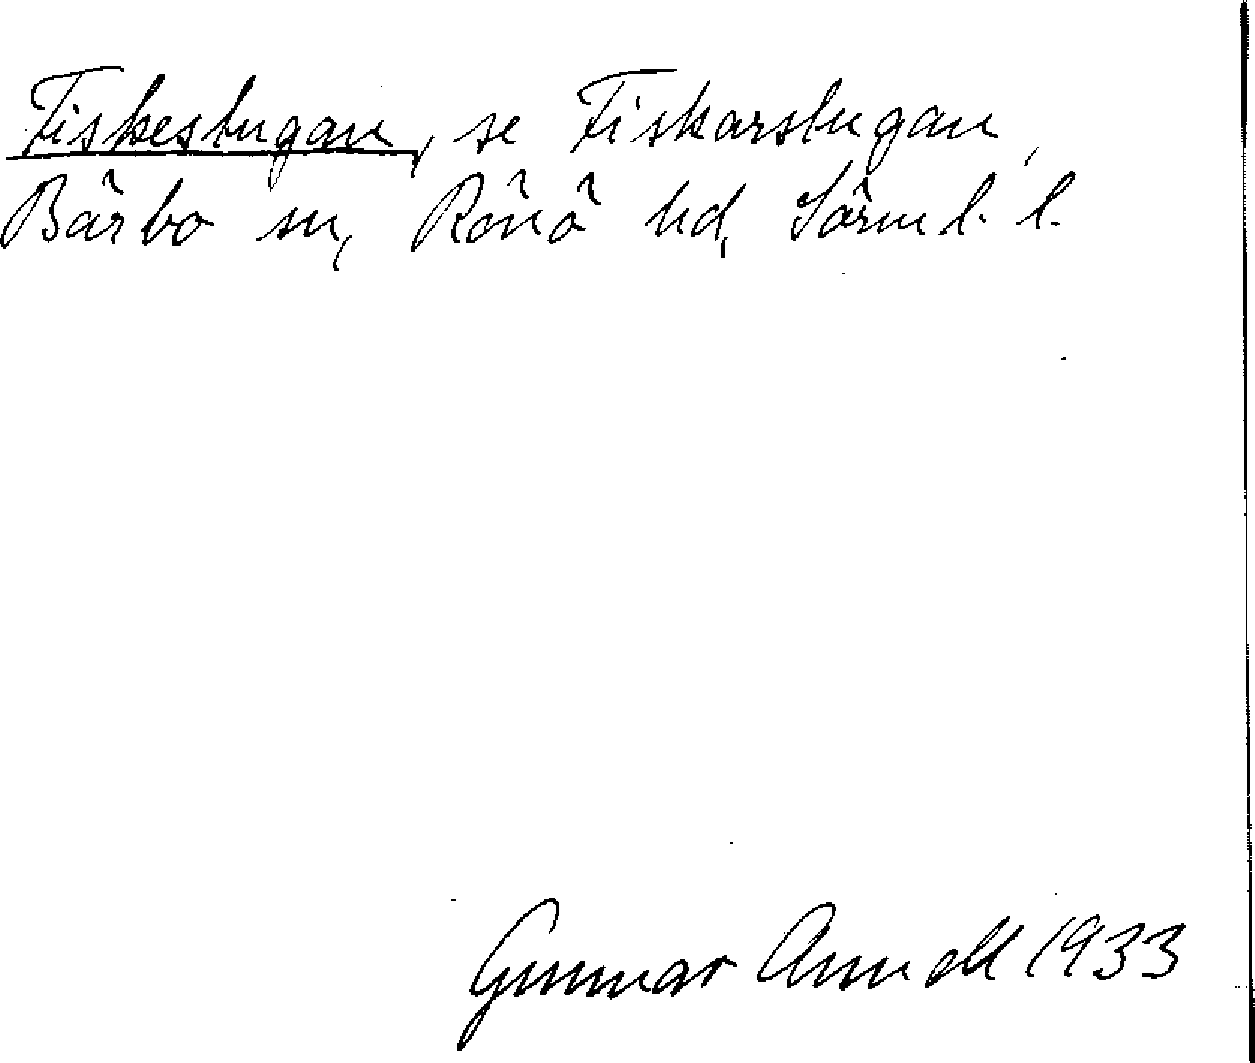 Fiskestugan, se Fiskarstugan,
Bärbo sn, Rönö hd, Sörml. l.
Gunnar Arndell 1933